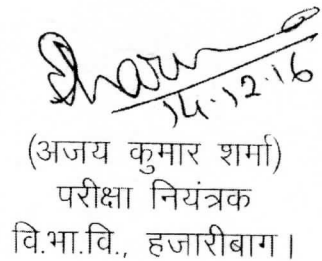 Sharma
14.12.16
(अजय कुमार शर्मा)
परीक्षा नियंत्रक
वि.भा.वि., हजारीबाग।